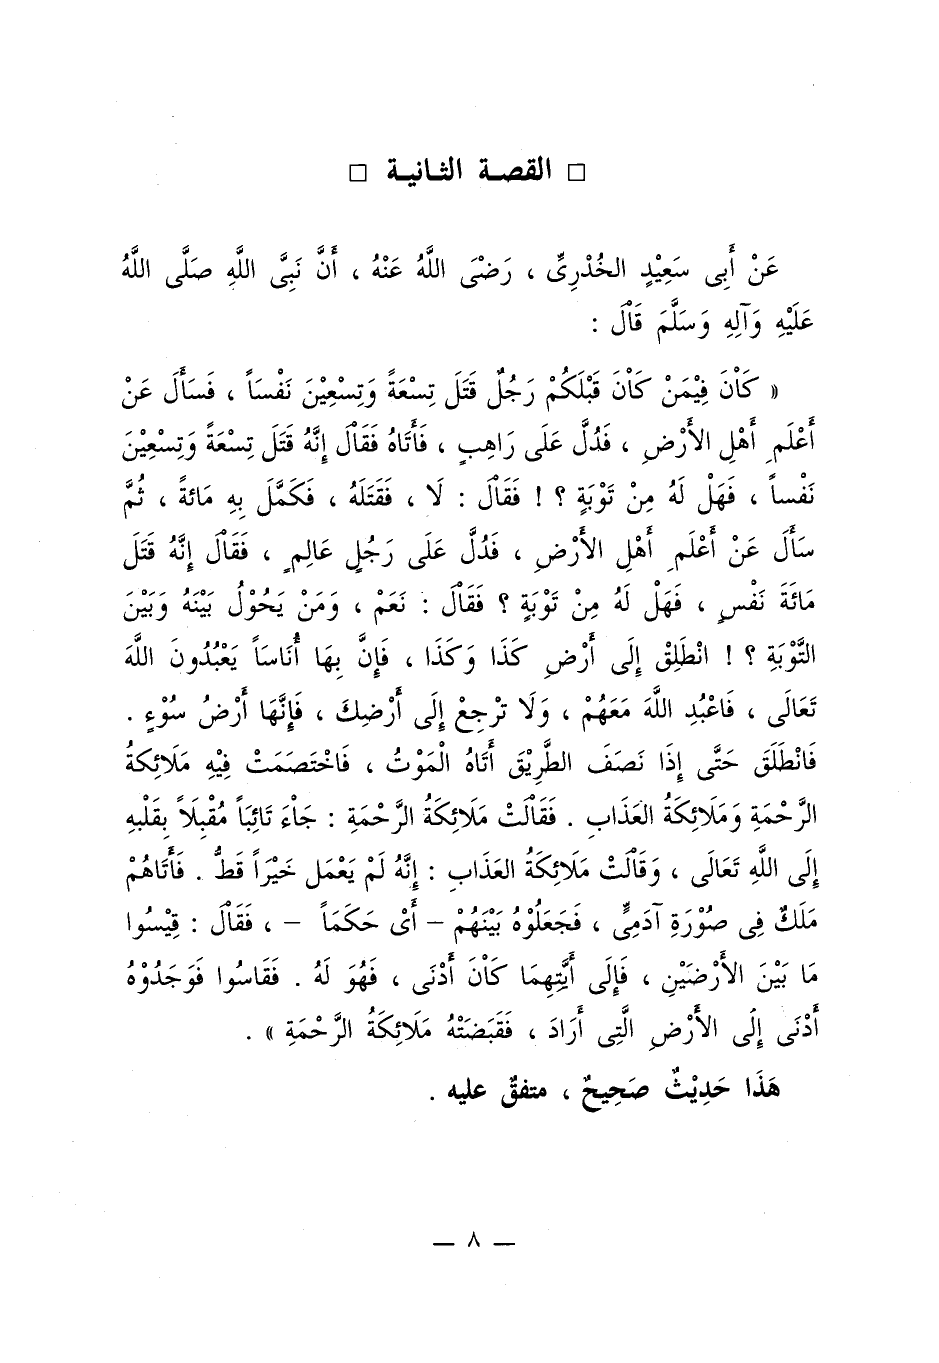 □ القصة الثانية □
عَنْ أَبِى سَعِيْدٍ الخُدْرِىِّ ، رَضْىَ اللَّهُ عَنْهُ ، أَنَّ نَبِىَّ اللَّهِ صَلَّى اللَّهُ
عَلَيْهِ وَآلِهِ وَسَلَّمَ قَاْلَ :
« كَاْنَ فِيْمَنْ كَاْنَ قَبْلَكُمْ رَجُلٌ قَتَلَ تِسْعَةً وَتِسْعِيْنَ نَفْسَاً ، فَسَأَلَ عَنْ
أَعْلَمِ أَهْلِ الأَرْضِ ، فَدُلَّ عَلَى رَاهِبٍ ، فَأَتَاهُ فَقَاْلَ إِنَّهُ قَتَلَ تِسْعَةً وَتِسْعِيْنَ
نَفْساً ، فَهَلْ لَهُ مِنْ تَوْبَةٍ ؟ ! فَقَاْلَ : لَا ، فَقَتَلَهُ ، فَكَمَّلَ بِهِ مَائةً ، ثُمَّ
سَأَلَ عَنْ أَعْلَمِ أَهْلِ الأَرْضِ ، فَدُلَّ عَلَى رَجُلٍ عَالِمٍ ، فَقَاْلَ إِنَّهُ قَتَلَ
مَائَةَ نَفْسٍ ، فَهَلْ لَهُ مِنْ تَوْبَةٍ ؟ فَقَاْلَ : نَعَمْ ، وَمَنْ يَحُوْلُ بَيْنَهُ وَبَيْنَ
التَّوْبَةِ ؟ ! انْطَلِقْ إِلَى أَرْضِ كَذَا وَكَذَا ، فَإِنَّ بِهَا أُنَاسَاً يَعْبُدُونَ اللَّهَ
تَعَالَى ، فَاعْبُدِ اللَّهَ مَعَهُمْ ، وَلَا تَرْجِعْ إِلَى أَرْضِكَ ، فَإِنَّهَا أَرْضُ سُوْءٍ .
فَانْطَلَقَ حَتَّى إِذَا نَصَفَ الطَّرِيْقَ أَتَاهُ الْمَوْتُ ، فَاخْتَصَمَتْ فِيْهِ مَلَائِكةُ
الرَّحْمَةِ وَمَلَائِكَةُ العَذَابِ . فَقَاْلَتْ مَلَائِكَةُ الرَّحْمَةِ : جَاْءَ تَائِبَاً مُقْبِلَاً بِقَلْبِهِ
إِلَى اللَّهِ تَعَالَى ، وَقَاْلَتْ مَلَائِكَةُ العَذَابِ : إِنَّهُ لَمْ يَعْمَل خَيْرَاً قَطُّ . فَأَتَاهُمْ
مَلَكٌ فِى صُوْرَةِ آدَمِىٍّ ، فَجَعَلُوْهُ بَيْنَهُمْ – أَىْ حَكَمَاً – ، فَقَاْلَ : قِيْسُوا
مَا بَيْنَ الأَرْضَيْنِ ، فَإِلَى أَيَّتِهِمَا كَاْنَ أَدْنَى ، فَهُوَ لَهُ . فَقَاسُوا فَوَجَدُوْهُ
أَدْنَى إِلَى الأَرْضِ الَّتِى أَرَادَ ، فَقَبَضَتْهُ مَلَائِكَةُ الرَّحْمَةِ » .
هَذَا حَدِيْثٌ صَحِيحٌ ، متفقٌ عليه .
— ٨ —